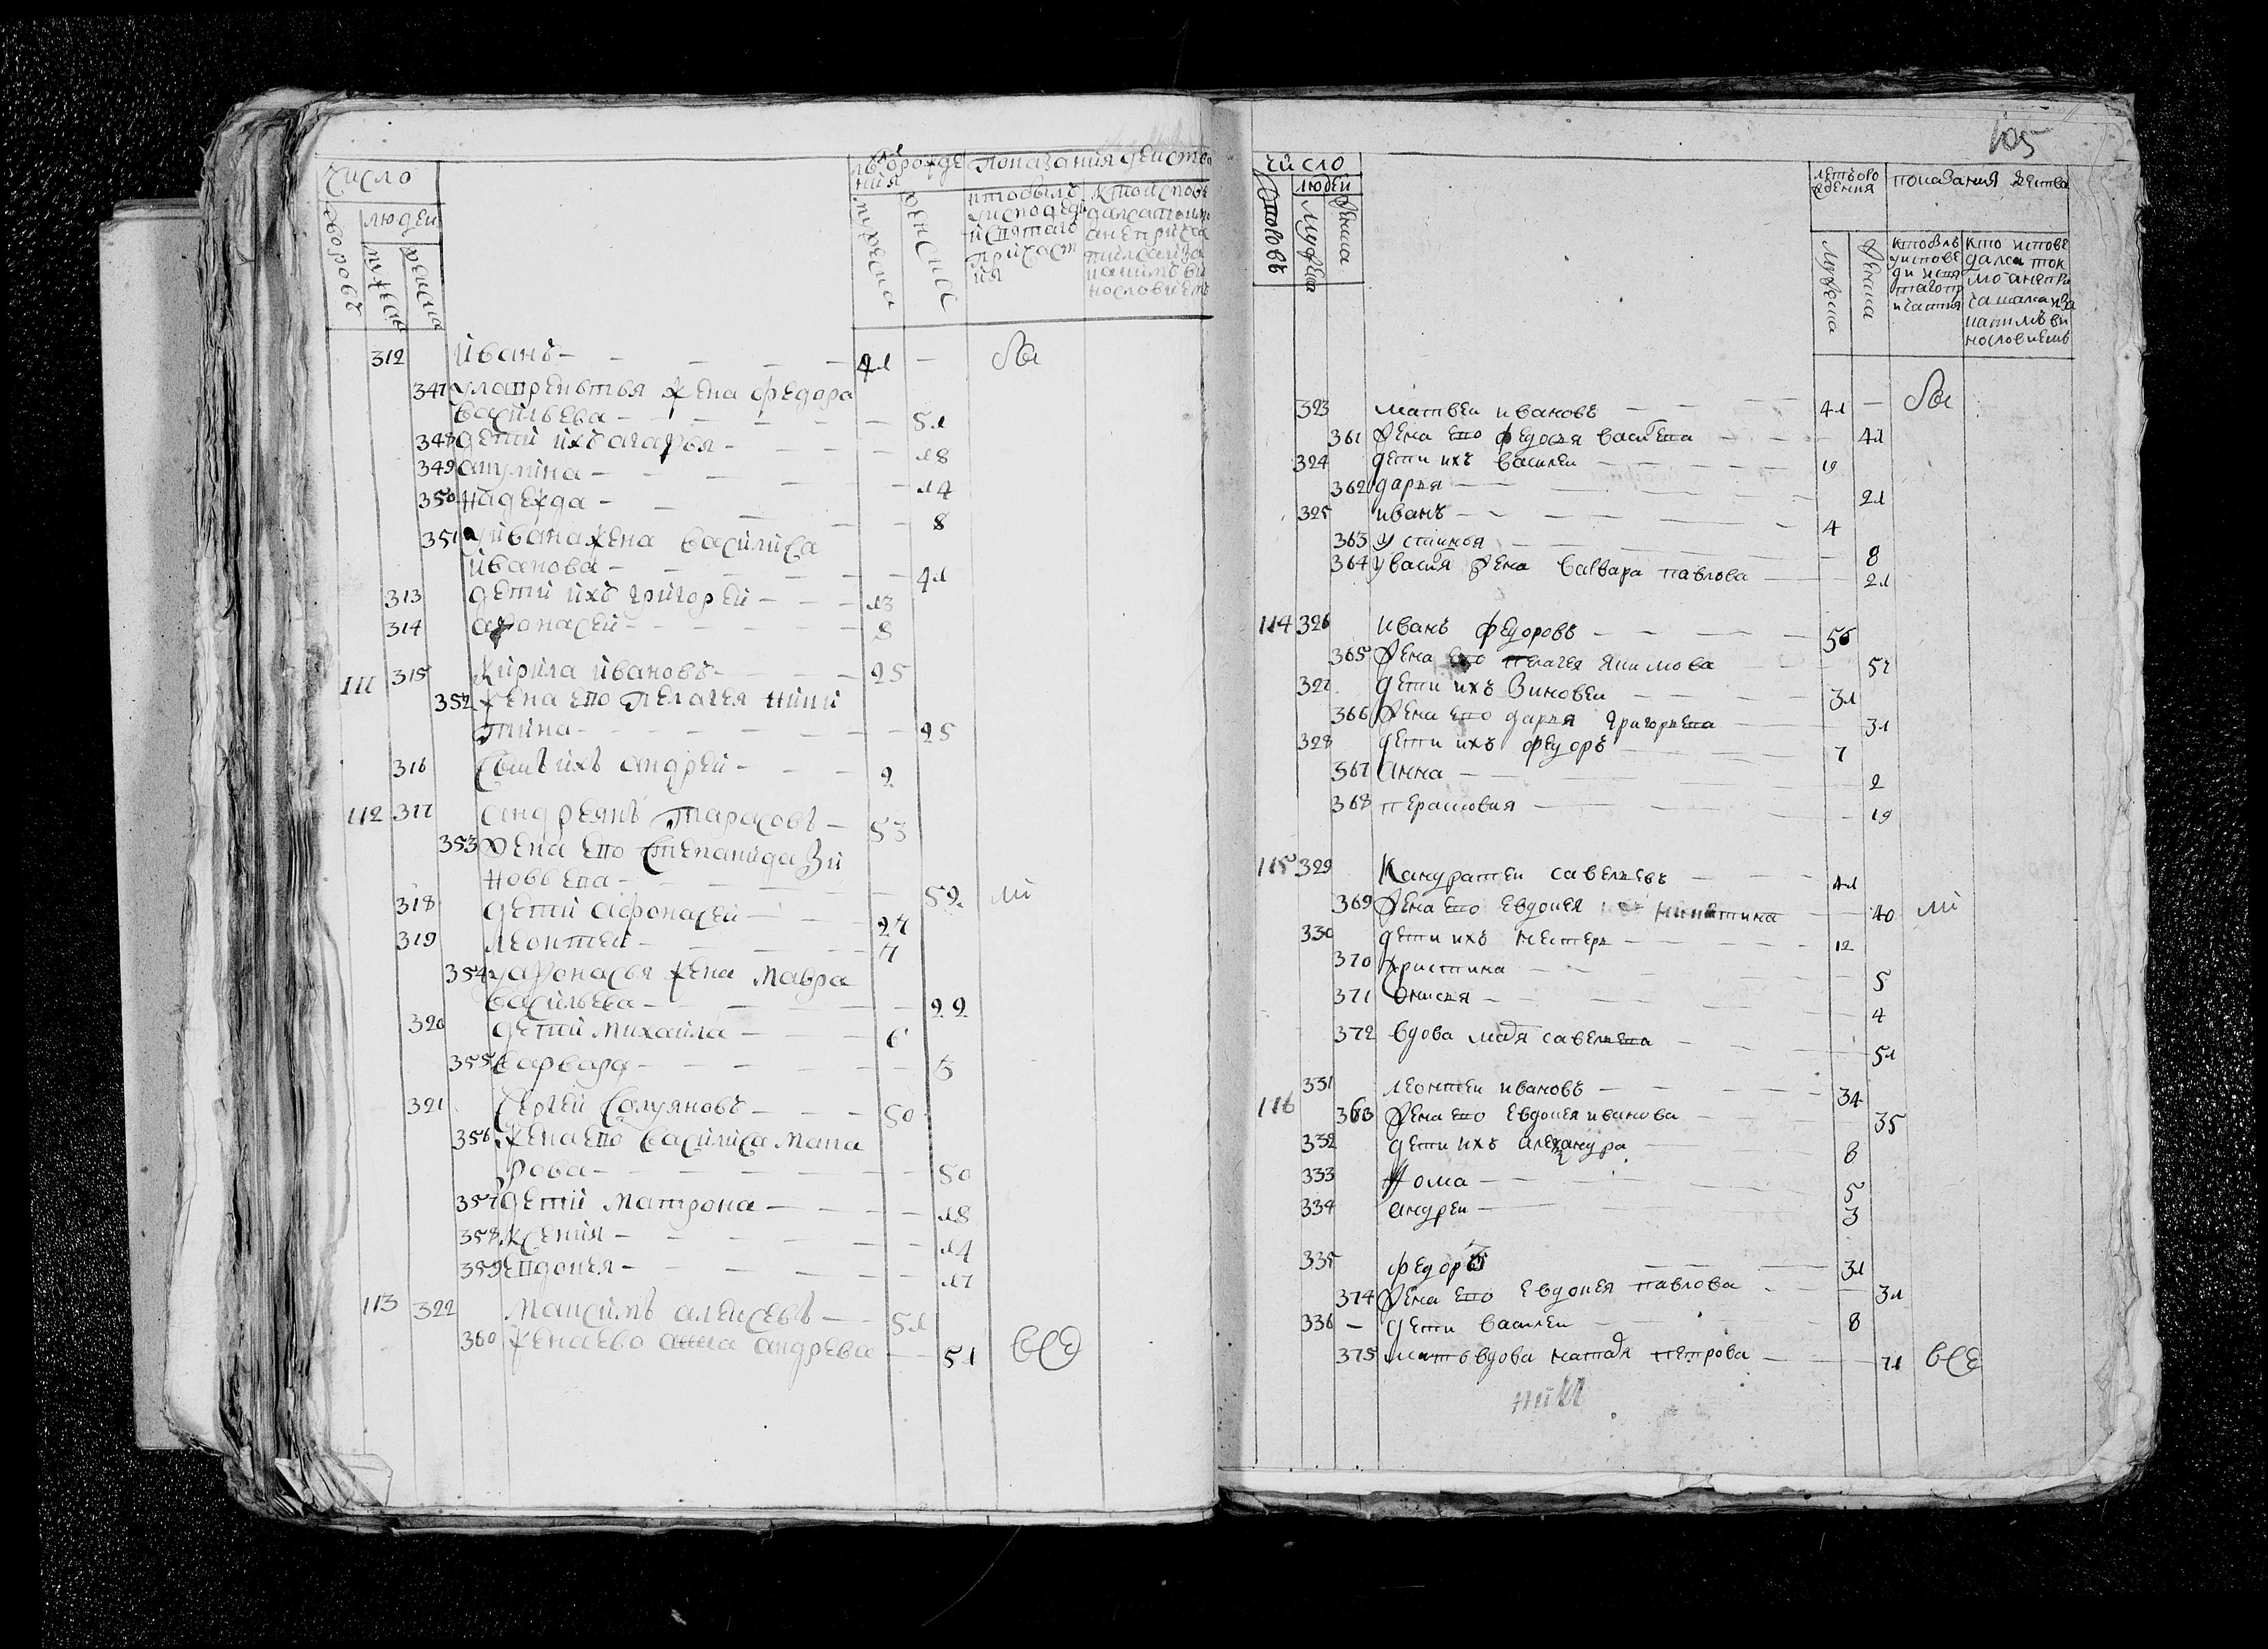 число
людей
дворовъ
мужеска
женска
лѣторожде
ния
показания действа
мужеска
женска
ктобылъ
уисповеди
исвятаго
причаст
ия
ктоисповѣ
312 Иванъ 41 бы
347 улаврентья жена федора
васильева 51
348 дети ихъ агафья 18
349 акулина 14
350 надежда 8
351 уивана жена василиса
иванова 41
313 дети ихъ григорей 13
314 афонасей 8
111 315 кирила ивановъ 25
352 жена ево пелагея ники
тина 25
316 сынъ ихъ андрей 2
112 317 андреянъ тарасовъ 53
353 жена ево степанида зи
новьева 52 ли
318 дети афонасей 27
319 леонтей 7
354 уафонасья жена мавра
васильева 22
320 дети михайла 6
355 варвара 3
321 сергей солуяновъ 50
356 жена ево василиса мака
рова 50
357 дети матрона 18
358 ксения 14
359 евдокея 11
113 322 максимъ алексевъ 51
360 жена ево анна андрева 51 всѣ
105
число
людей
дворовъ
мужеска
женска
летъворо
ждения
показания действа
мужеска
женска
ктобылъ
уиспове
ди исвя
таго пр
ичастия
кто испове
дался ток
мо анепри
чащался иза
каким ви
нословиемъ
323 матвеи ивановъ 41 бы
361 жена ево федосья васильева 41
324 дети ихъ василеи 19
362 дарья 21
325 иванъ 4
363 устинья 8
364 увасилья жена варвара павлова 21
114 326 иванъ федоровъ 56
365 жена ево пелагея якимова 57
327 дети ихъ зиновеи 31
366 жена ево дарья григорьева 31
328 дети ихъ федоръ 7
367 анна 2
368 перасковия 19
115 329 кандратеи савельевъ 41
369 жена ево евдокея никитина 40 ли
330 дети ихъ нестеръ 12
370 христина 5
371 анисья 4
372 вдова савельева 51
331 леонтеи ивановъ 34
116 363 жена ево евдокея иванова 35
332 дети ихъ александра 6
333 фома 5
334 андреи 3
335 федоръ 31
374 жена ево евдокея павлова 31
336 дети василеи 8
375 мать вдова наталья петрова 71 всѣ